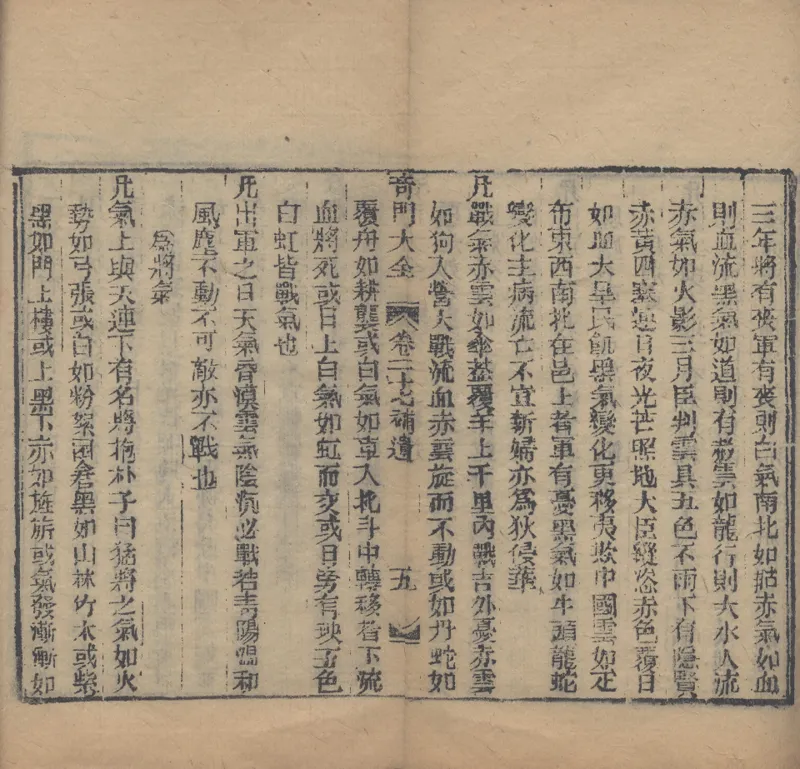 三年將有喪軍有喪則白氣南北如姑赤氣如血
則血流黑氣如道則有殺雲如龍行則大水人流
赤氣如火影三月臣判雲具五色不雨下有隱賢
赤黃四塞連日夜光芒照地大臣縱恣赤色覆日
如血大旱民飢黑氣變化更移夷欺中國雲如疋
布東西南北在邑上者軍有憂黑氣如牛頭龍蛇
變化主病流亡不宜新婦亦為狄侵華
凡戰氣赤雲如傘蓋覆軍上千里內戰吉外憂赤雲
如狗入營大戰流血赤雲旋而不動或如丹蛇如
奇門大全 卷二十七補遺 五
覆舟如耕壟或白氣如車入北斗中轉移者下流
血將死或日上白氣如虹而交或日旁有玦五色
白虹皆戰氣也
凡出軍之日天氣昏漠雲氣陰沉必戰若青陽溫和
風塵不動不可敵亦不戰也
為將氣
凡氣上與天連下有名將抱朴子曰猛將之氣如火
勢如弓張或白如粉絮囷倉黑如山林竹木或紫
黑如門上樓或上黑下赤如旌旂或氣發漸漸如